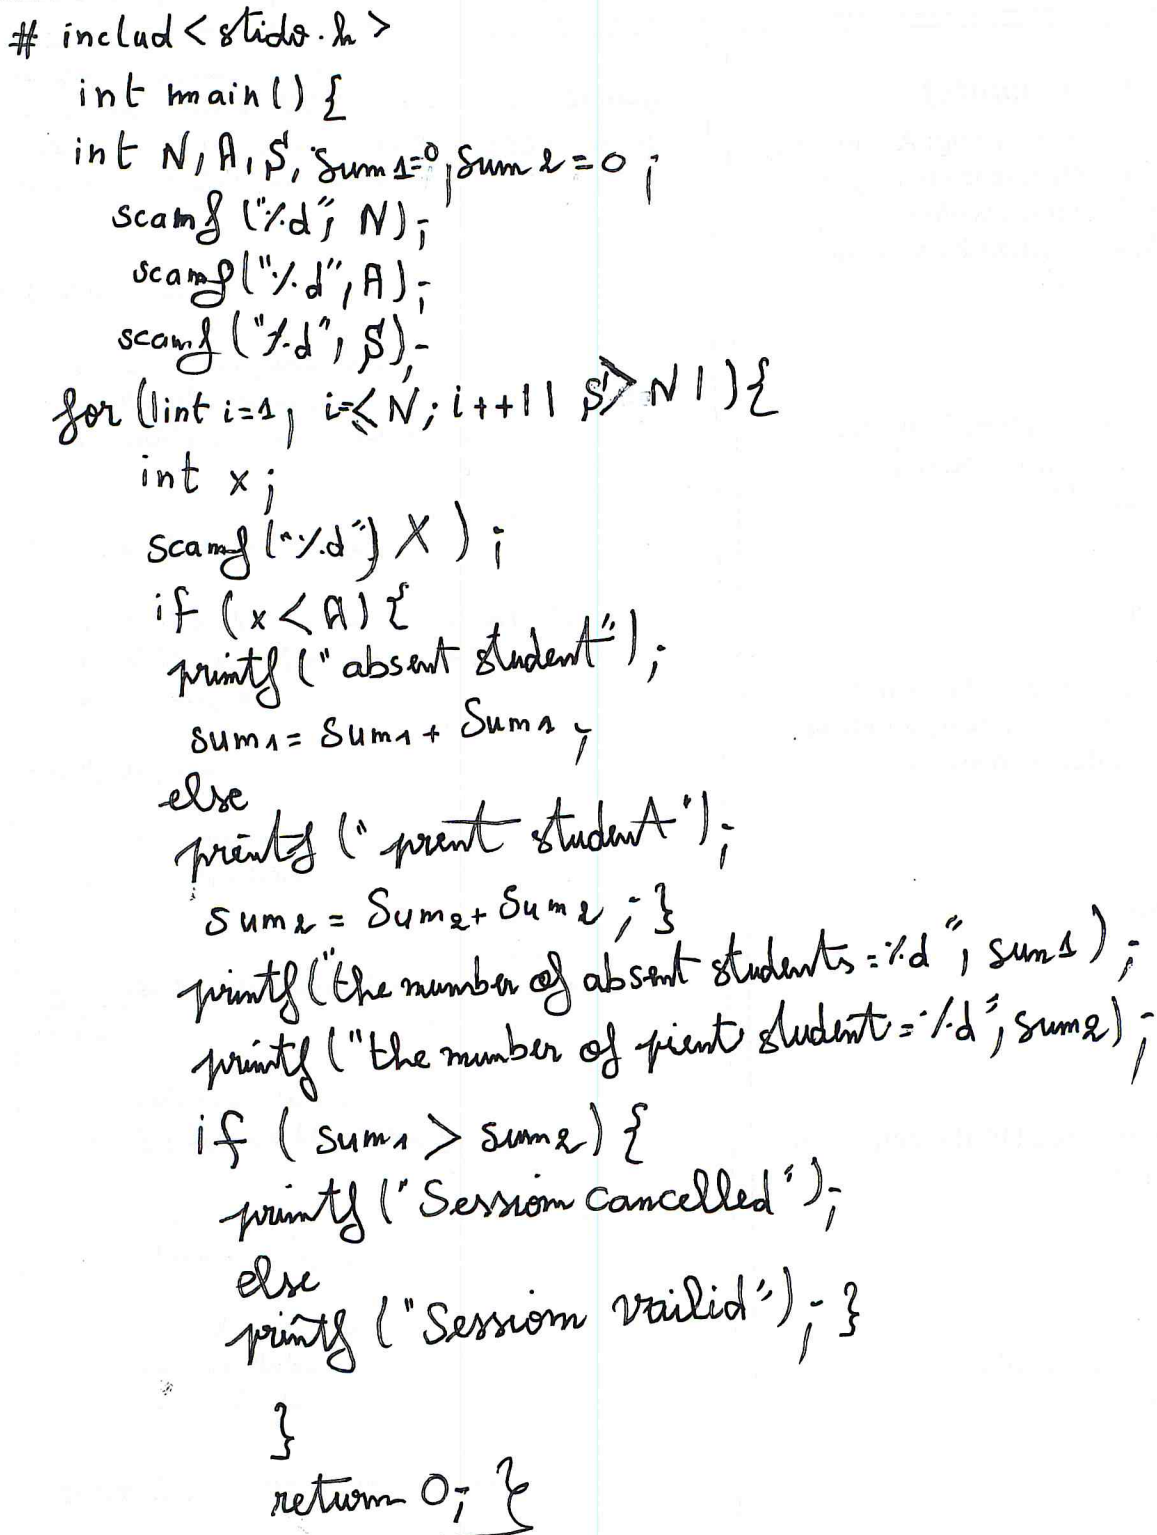 # includ < stido.h >
int main() {
int N, A, S, Sum1=0, Sum2=0 ;
scamf ("%d", N);
scamf("%d", A);
scamf ("%d", S);
for (int i=1; i=<N; i++ || S>N | ) {
int x ;
scamf ("%d", X ) ;
if (x < A) {
printf ("absent student");
sum1 = Sum1 + Sum1 ;
else
printf (" prent student");
sum2 = Sum2 + Sum2 ; }
printf("the number of absent students = %d ", sum1 );
printf ("the number of pient student = %d", sum2);
if ( sum1 > sum2) {
printf ("Session cancelled");
else
printf ("Session vailid"); }
}
return 0; }